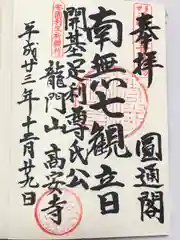 奉拝
圓通閣
南無七観音
開基足利尊氏公
龍門山 高安寺
平成廿三年十二月廿九日